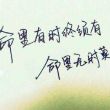 命里有时终须有
命里无时莫